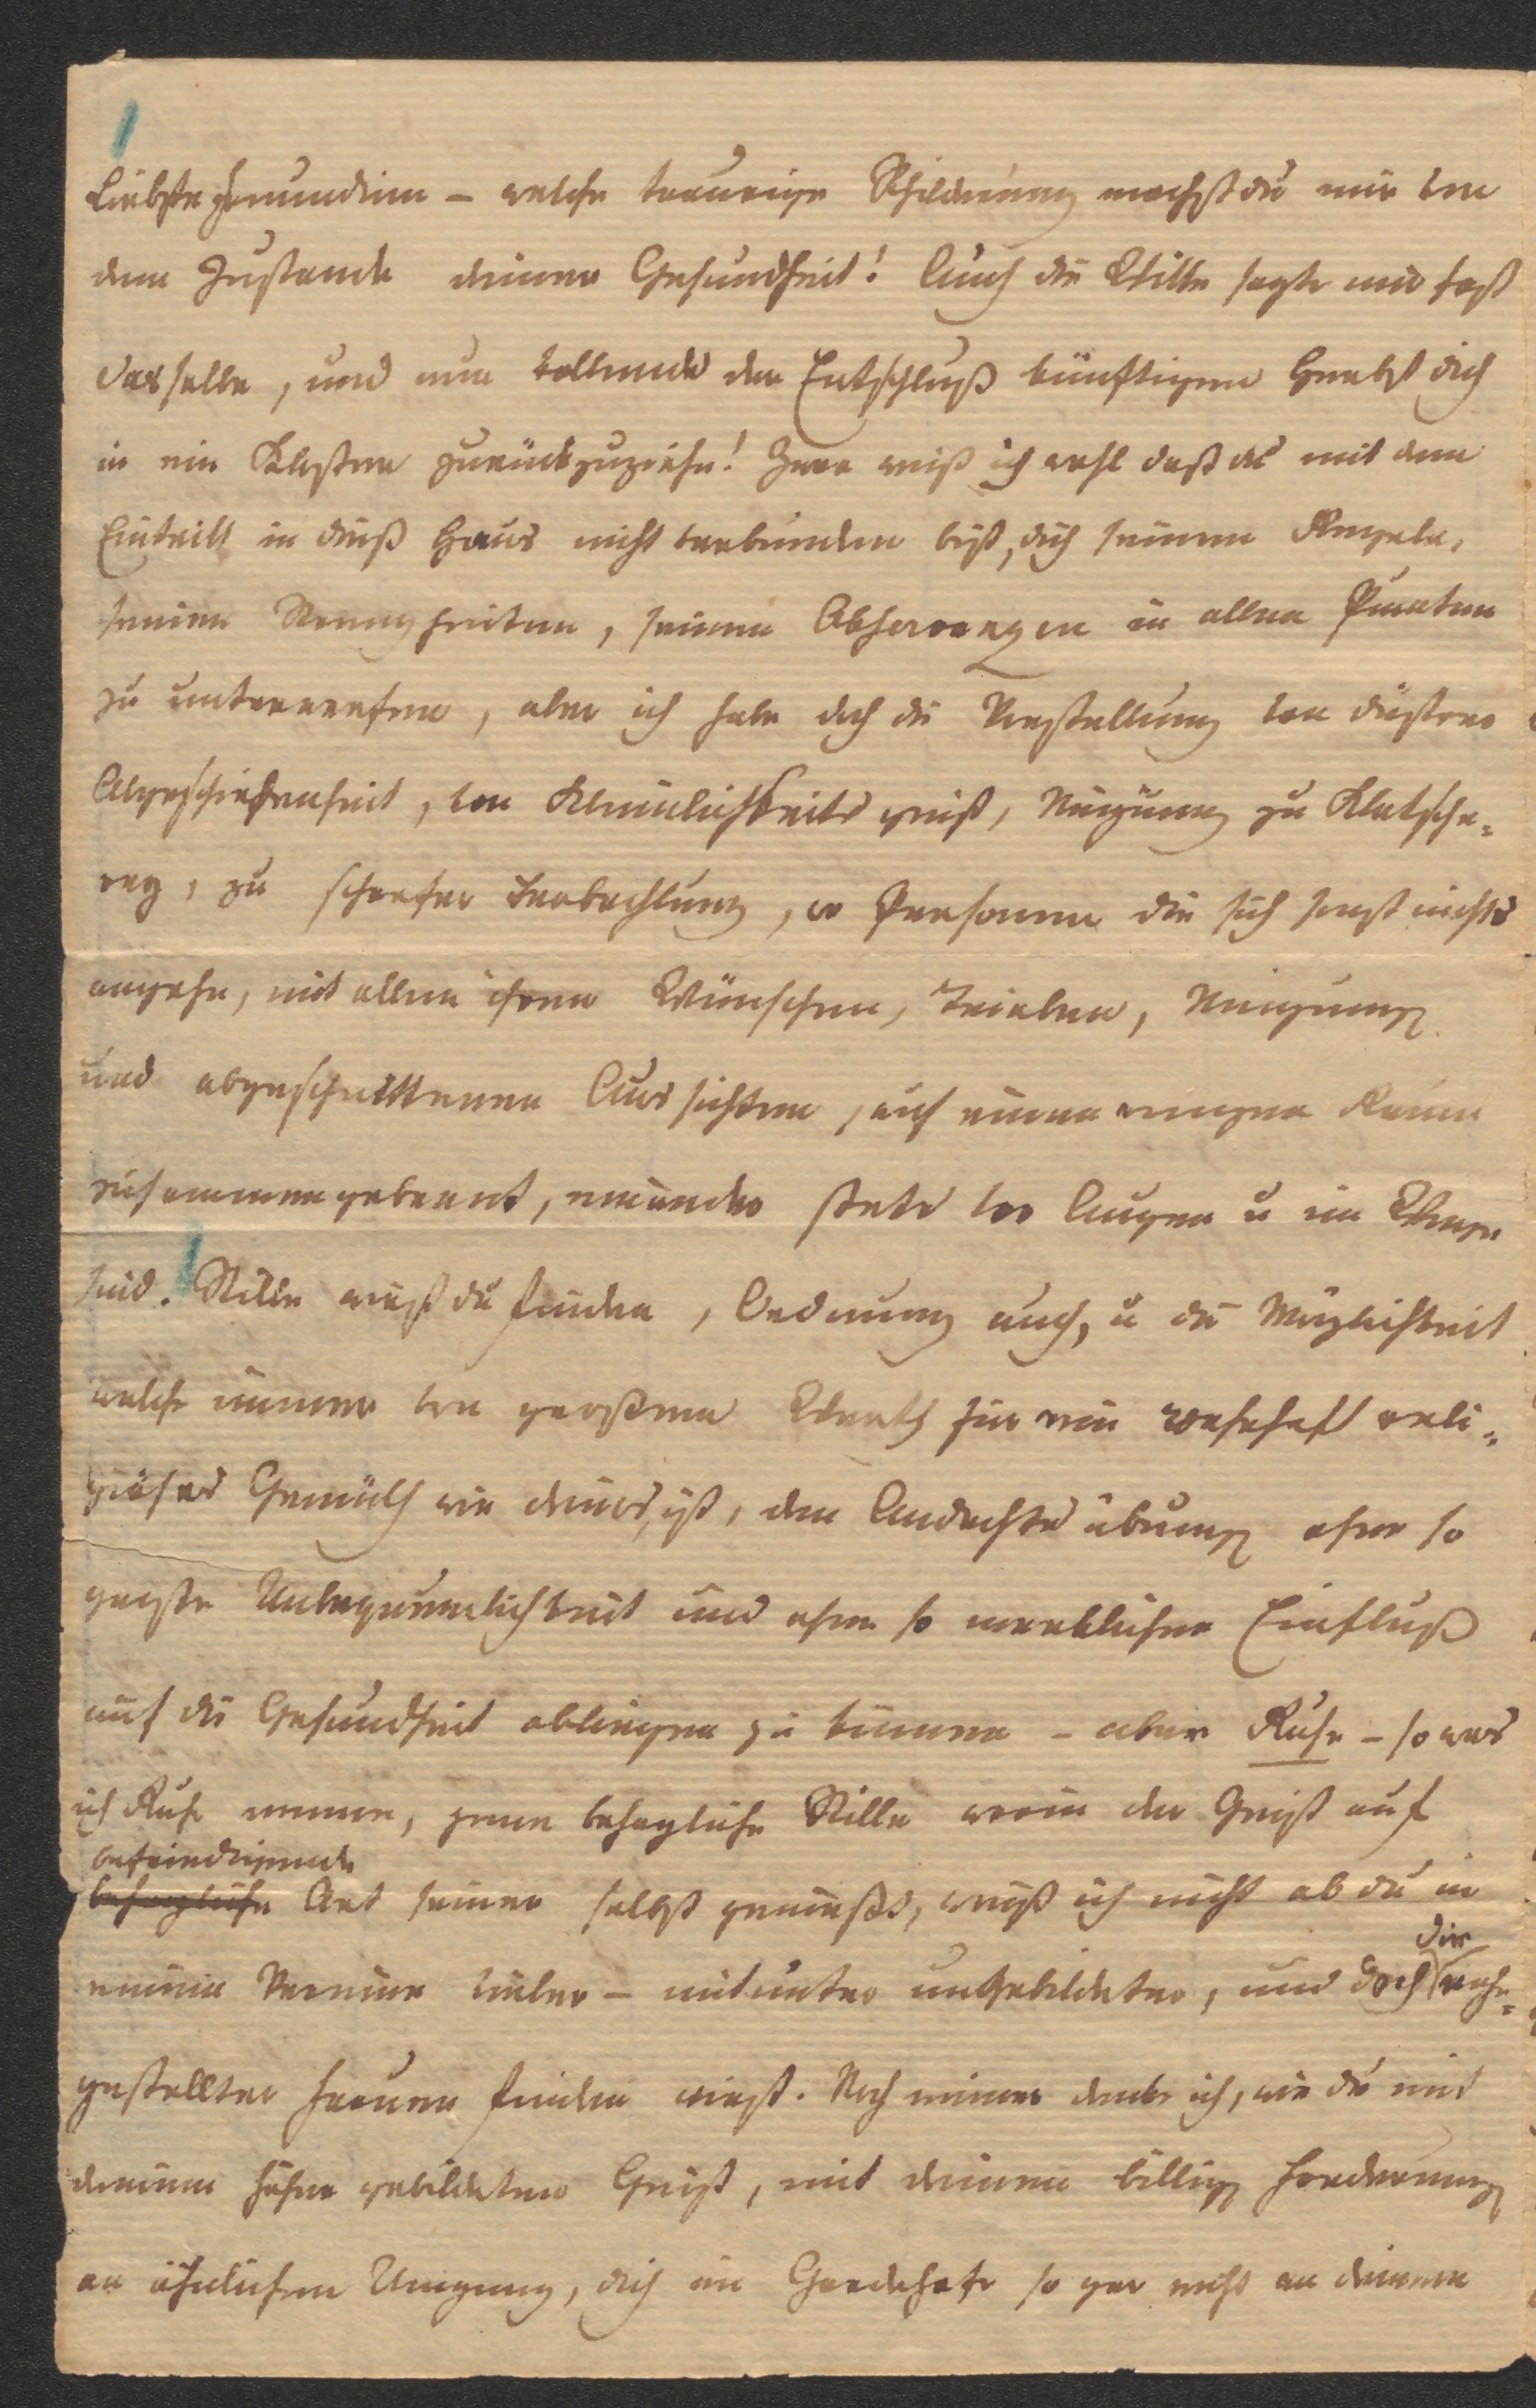 Liebste Freundinn – welche traurige Schilderung machst du mir von
dem Zustande deiner Gesundheit! Auch die Wilke sagte mir fast
dasselbe, und nun vollends der Entschluß künftigen Herbst dich
in ein Kloster zurückzuziehn! Zwar weiß ich wohl daß du mit dem
Eintritt in dieß Haus nicht verbunden bist, dich seinen Regeln,
seinen Strengheiten, seinen Observanzen in allen Puncten
zu unterwerfen, aber ich habe doch die Vorstellung von düstrer
Abgeschiedenheit, von Kleinlichkeits geist, Neigung zu Klatsche=
rey, zu scharfer Beobachtung, wo Personen die sich sonst nichts
angehn, mit allen ihren Wünschen, Trieben, Neigungen
und abgeschnittenen Aussichten, auf einen engen Raum
zusammengebannt, einander stets vor Augen u im Wege
sind. Stille wirst du finden, Ordnung auch, u die Möglichkeit
welche immer von großem Werth für ein wahrhaft reli=
giöses Gemüth wie deines, ist, den Andachtsübungen ohne so
große Unbequemlichkeit und ohne so merklichen Einfluß
auf die Gesundheit obliegen zu können – aber Ruhe – so was
ich Ruhe nenne, jene behagliche Stille worin der Geist auf
befriedigende
behagliche Art seiner selbst genießt, weiß ich nicht ob du in
einem Vereine vieler – mitunter ungebildeter, und doch dir nahe=
gestellter Frauen finden wirst. Noch immer denke ich, wie du mit
deinem höher gebildeten Geist, mit deinen billigen Forderungen
an ähnlichen Umgang, dich im Gardehofe so gar nicht an deinem